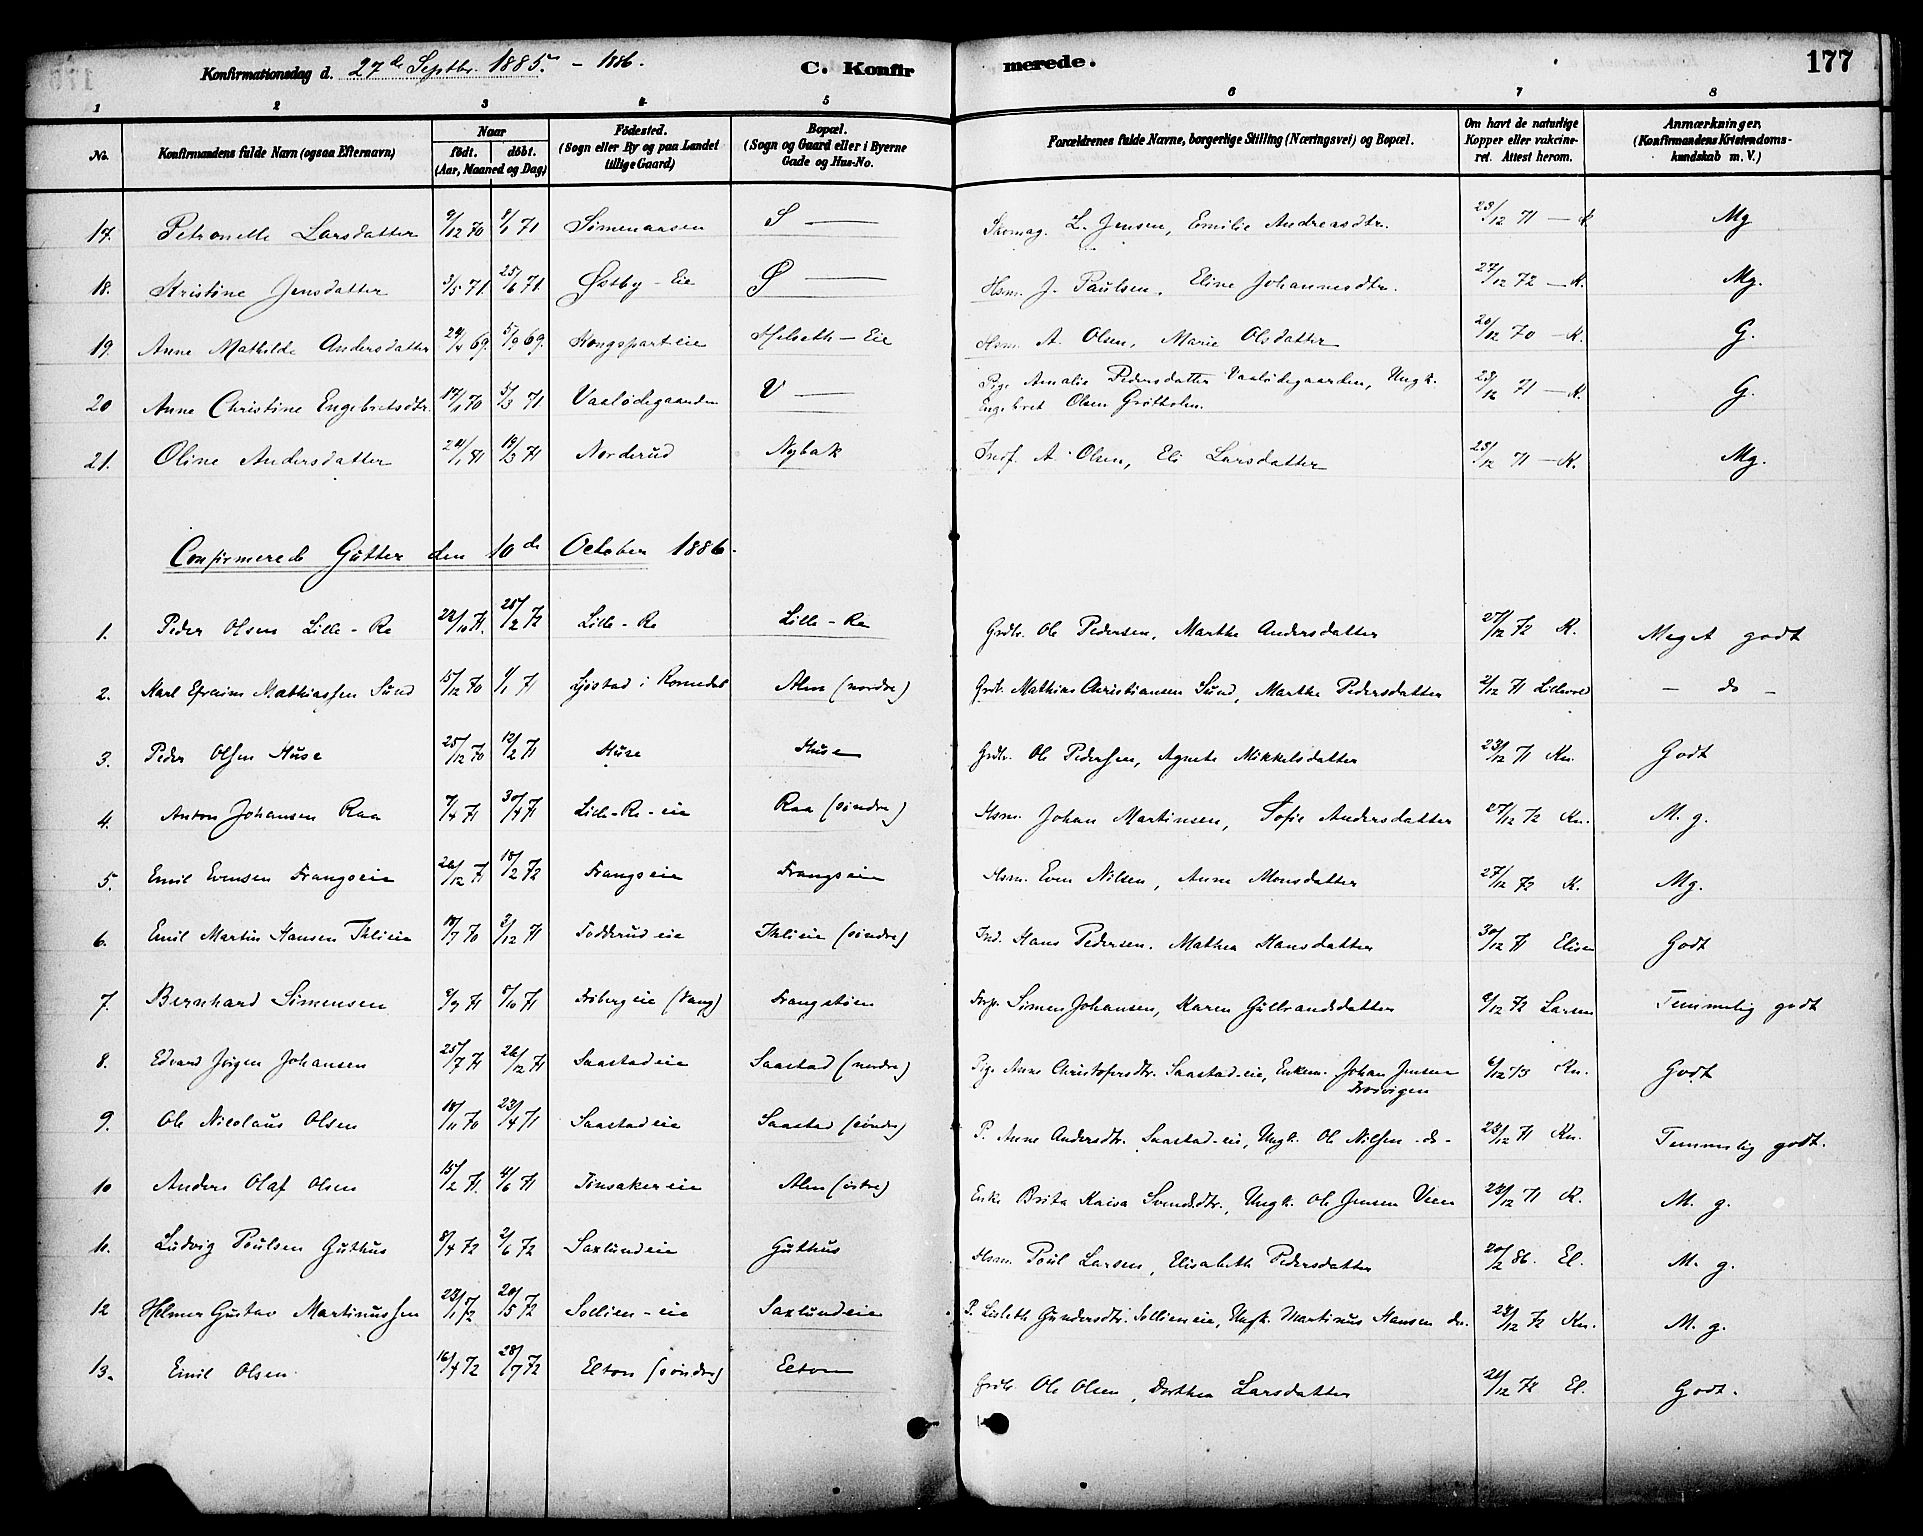 Konfirmationsdag d. 27de Septbr. 1885. - 1886. C. Konfirmerede. 177
1 2 3 4 5 6 7 8
No. Konfirmandens fulde Navn (ogsaa Efternavn) Naar født. døbt. (Aar, Maaned og Dag) Fødested. (Sogn eller By og paa Landet tillige Gaard) Bopæl. (Sogn og Gaard eller i Byerne Gade og Hus-No. Forældrenes fulde Navne, borgerlige Stilling (Næringsvei) og Bopæl. Om havt de naturlige Kopper eller vakcineret. Attest herom. Anmærkninger. (Konfirmandens Kristendomskundskab m. V.)
17. Petronelle Larsdatter 9/12 70 8/1 71 Simenaasen S — Skomag. L. Jensen, Emilie Andreasdtr. 23/12 71 — K. Mg
18. Kristine Jensdatter 3/5 71 25/6 71 Østby - Eie Ø — Hsm. J. Paulsen, Eline Johannesdtr. 27/12 72 — K. Mg.
19. Anne Mathilde Andersdatter 29/4 69. 5/9 69. Kongsparteie Helseth - Eie Hsm. A. Olsen, Marie Olsdatter 20/12 70 — K. G.
20 Anne Christine Engebretsdtr. 17/1 70 5/3 71 Vaalødegaarden V — Pige Amalie Pedersdatter Vaalødegaarden, Ungk. Engebret Olsen Grøtholm. 23/12 71 — K. G.
21. Oline Andersdatter 21/1 71 19/3 71 Norderud Nybak Inds. A. Olsen, Eli Larsdatter 23/12 71 — K. Mg.
Confirmerede Gutter den 10de October 1886.
1. Peder Olsen Lille-Re 22/10 71. 25/2 72 Lille-Re Lille-Re Grdbr. Ole Pedersen, Marthe Andersdatter 27/12 72 K. Meget godt
2. Karl Efraim Mathiassen Sund 15/12 70 1/1 71 Ljøstad i Romedal Alm (nordre) Grdb. Mathias Christiansen Sund, Marthe Pedersdatter 2/12 71 - do -
3. Peder Olsen Huse 25/12 70 12/2 71 Huse Huse Grdbr. Ole Pedersen, Agnete Mikkelsdatter 23/12 71 Kn. Godt
4. Anton Johansen Raa 7/4 71 30/4 71 Lille-Re-eie Raa (søndre) Hsm. Johan Martinsen, Sofie Andersdatter 27/12 72 Kn. M. g.
5. Emil Evensen Frangseie 26/12 71 18/2 72 Frangseie Frangseie Hsm. Even Nilsen, Anne Monsdatter 27/12 72 K. Mg.
6. Emil Martin Hansen Ihlieie 18/7 70 3/12 71 Fodderudeie Ihlieie (søndre) Ind. Hans Pedersen, Mathea Hansdatter 30/12 71 Godt
7. Bernhard Simensen 9/7 71 8/10 71 (Vang) Frangstøen Simen Johansen, Karen Gulbrandsdatter 9/12 72 Larsen Temmelig godt
8. Edvard Jørgen Johansen 25/7 71 26/12 71 Saastadeie Saastad (nordre) Pige Anne Christofersdtr. Saastad-eie, Enkem. Johan Jensen 6/12 75 Kn. Godt
9. Ole Nicolaus Olsen 18/11 70 23/4 71 Saastadeie Saastad (søndre) P. Anne Andersdtr. Saastad-eie, Ungk. Ole Nilsen -do- 23/12 71 Kn. Temmelig godt.
10 Anders Olaf Olsen 15/2 71. 4/6 71 Finsakereie Alm (østre) Enke Brita Kaisa Svendsdtr., Ungk. Ole Jensen Veen 23/12 71 K. M. g.
11. Ludvig Poulsen Guthus 8/4 72 2/6 72 Saxlundeie Guthus Hsm. Poul Larsen, Elisabeth Pedersdatter 20/2 86. El. M. g.
12 Hilmer Gustav Martinussen 23/1 72 20/5 72 Sollien-eie Saxlundeie P. Lisbeth Gundersdtr. Sollieneie, Ungk. Martinus Hansen do. 27/12 72 Kn. M. g.
13. Emil Olsen 16/4 72 28/7 72 Elton (søndre) Elton Grdb. Ole Olsen, Dorthea Larsdatter 21/12 72 El. Godt.